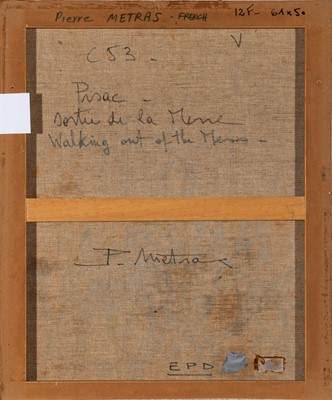 Pierre METRAS - FRENCH 12F - 61 x 50
V
C 53 -
Pisac -
sortie de la Messe
Walking out of the Mess -
P. Metras
EPD